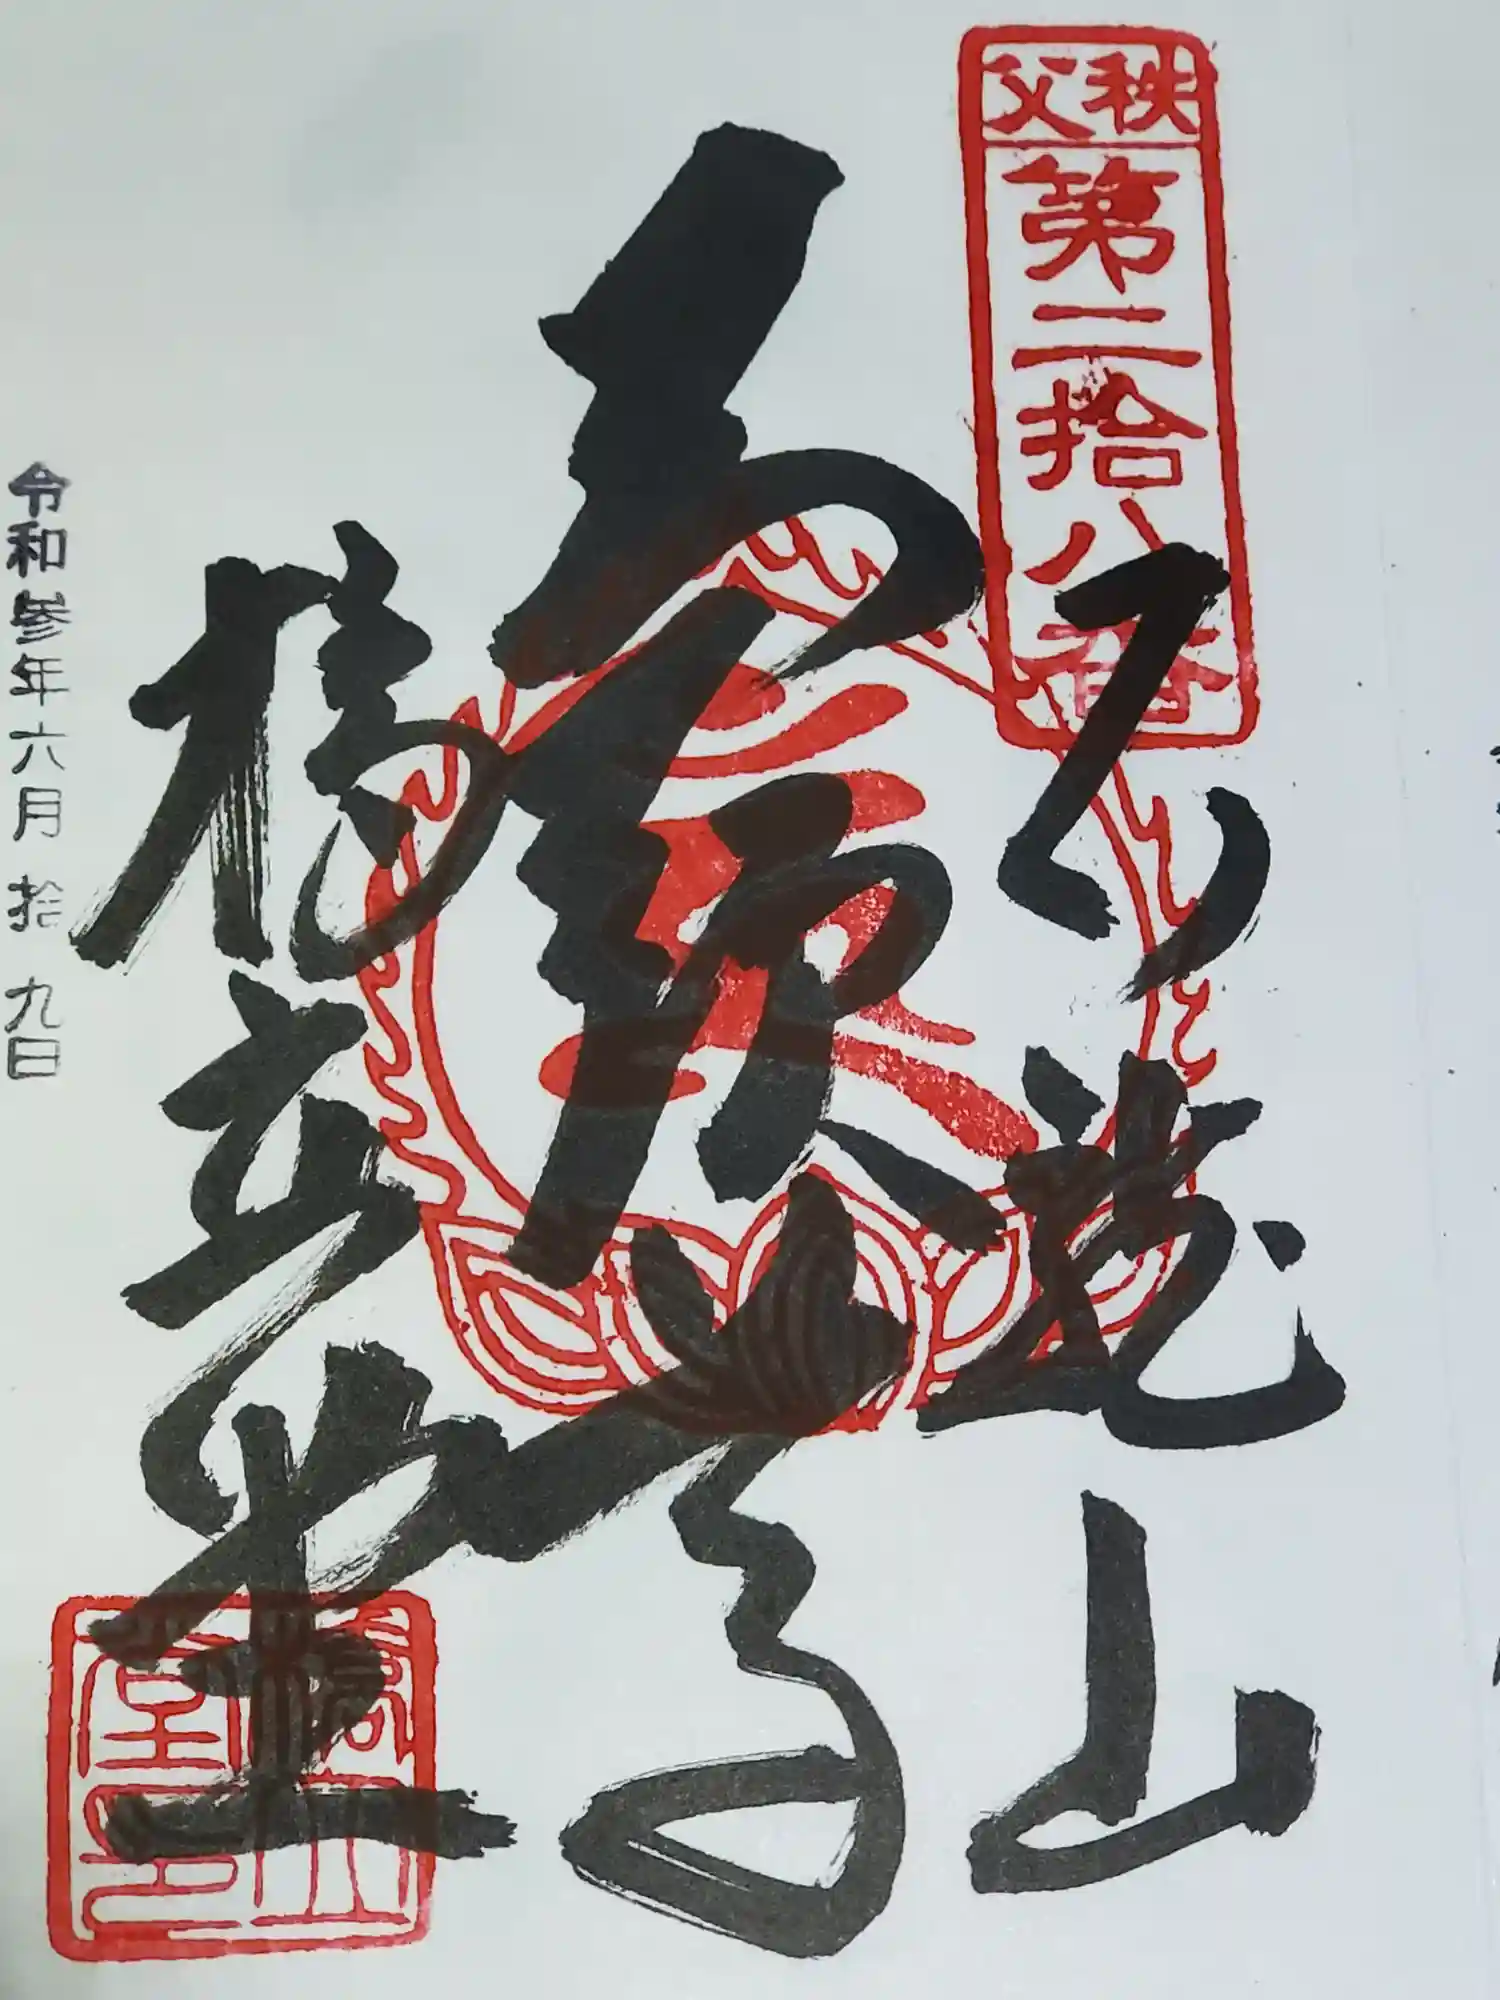 秩父
第二拾八番
石龍山
馬頭尊
橋立堂
橋立堂印
令和参年六月拾九日